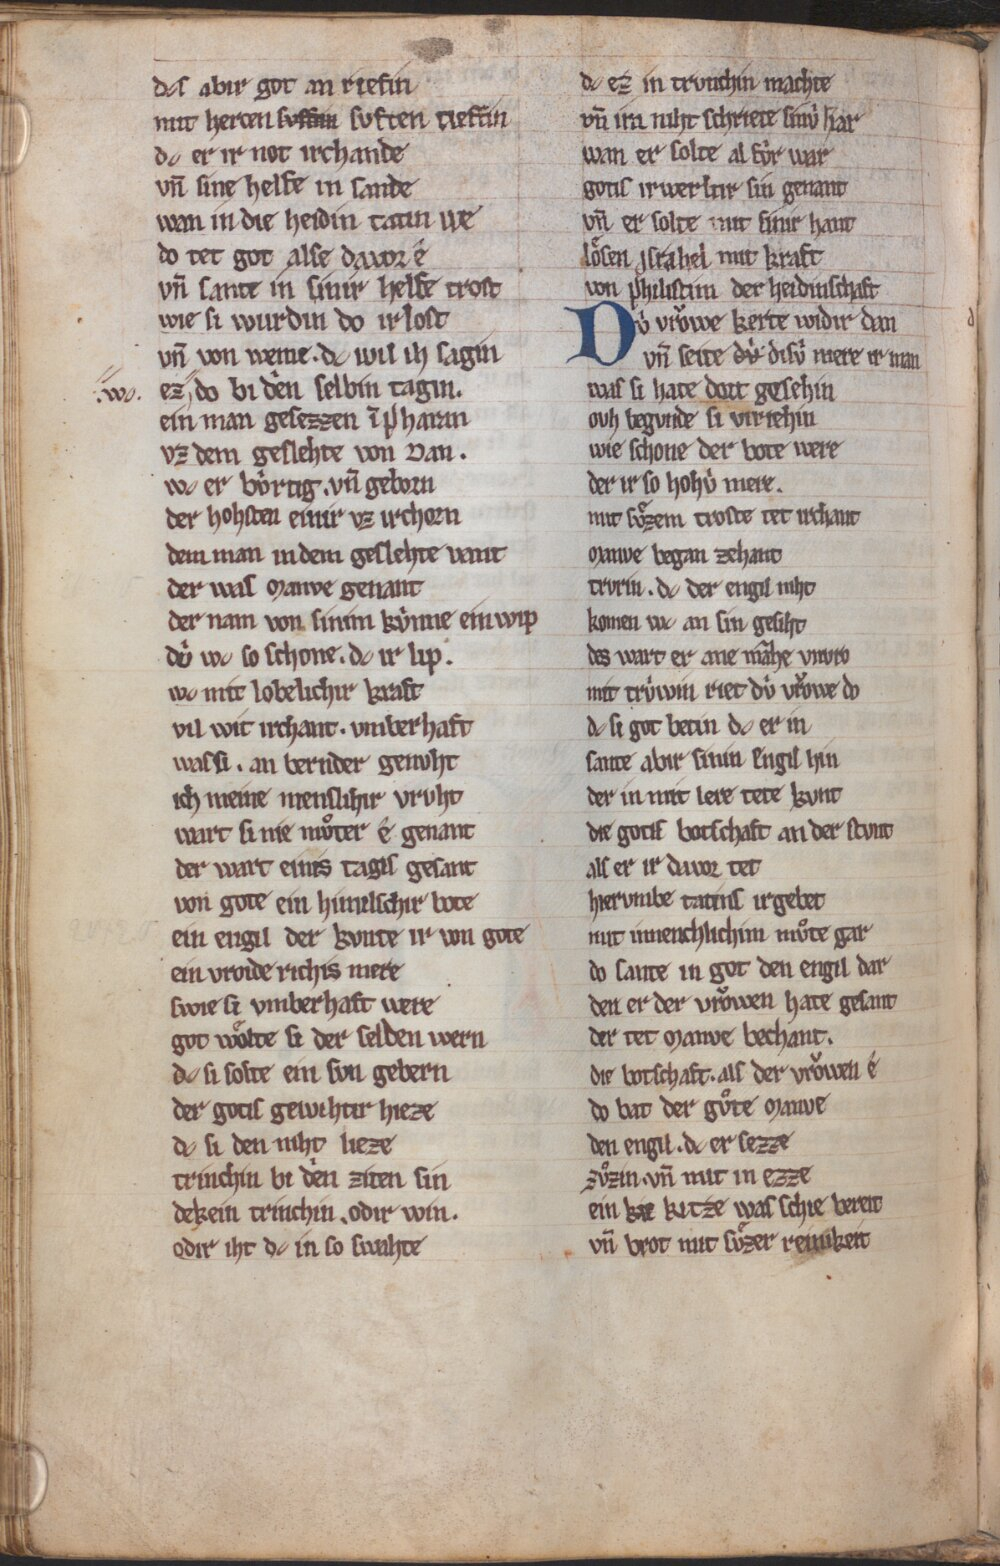 das abir got an riefin
mit hercen suffin suften tieffin
dc er ir not irchande
vn̄ sine helfe in sande
wan in die heidin tatin we
do tet got alse davor ê
vn̄ sante in sinir helfe trost
wie si wurdin do irlost
vn̄ von weme. dc wil ih sagin
.wc. ez do bi den selbin tagin.
ein man gesezzen ī pharan
vz dem geslehte von Dan.
wc er bv̍rtig. vn̄ geborn
der hohsten einir vz irchorn
dem man in dem geslehte vant
der was Manve genant
der nam von sinim kv̍nne ein wip
dv̍ wc so schone. dc ir lip.
wc mit lobelichir kraft
vil wit irchant. vmberhaft
was si. an bernder genvht
ich meine menslihir vrvht
wart si nie mvͦter ê genant
der wart einis tagis gesant
von gote ein himelschir bote
ein engil der kvnte ir von gote
ein vroide richis mere
swie si vmberhaft were
got wolte si der selden wern
dc si solte ein svn gebern
der gotis gewihtir hieze
dc si den niht lieze
trinchin bi den ziten sin
dekein trinchin. odir win.
odir iht dc in so swahte
dc ez in trvnchin machte
vn̄ im niht schriete sinv̍ har
wan er solte al fv̍r war
gotis irweltir sin genant
vn̄ er solte mit sinir hant
lôsen Jsrahel mit kraft
von philistim der heidinschaft
Dv̍ vrͦowe kerte widir dan
vn̄ seite dv̍ disv̍ mere ir man
was si hate dort gesehin
ovh begvnde si viriehin
wie schone der bote were
der ir so hohv̍ mere.
mit svͦzem troste tet irchant
Manve began zehant
trvrin. dc der engil niht
komen wc an sin gesiht
des wart er ane mahe vnvro
mit trv̍win riet dv̍ vrͦowe do
dc si got betin dc er in
sante abir sinin engil hin
der in mit lere tete kvnt
die gotis botschaft an der stvnt
als er ir davor tet
hiervmbe tatins ir gebet
mit innenchlichim mvͦte gar
do sante in got den engil dar
den er der vrͦowen hate gesant
der tet Manve bechant.
die botschaft. als der vrͦowen ê
do bat der gvͦte Manve
den engil. dc er sezze
zvͦzin. vn̄ mit in ezze
ein kie kitze was schie bereit
vn̄ brot mit svͦzer reinikeit